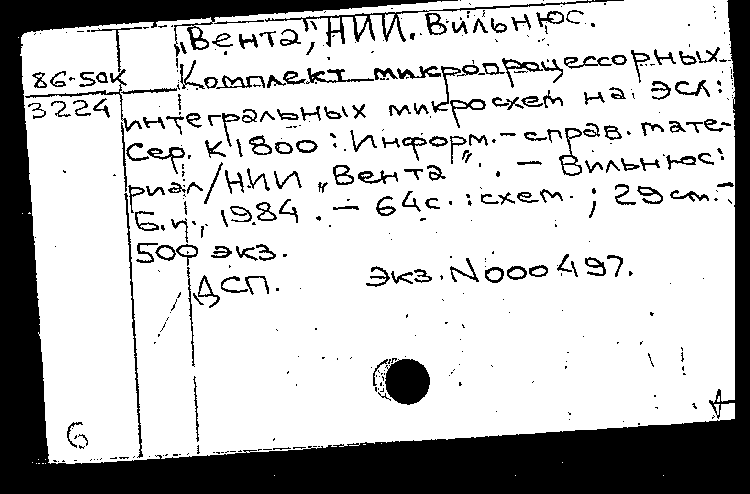 „Вента", НИИ. Вильнюс.
86-50К Комплект микропроцессорных
3224 интегральных микросхем на ЭСЛ:
Сер. К 1800 : Информ.-справ. мате-
риал/НИИ „Вента". — Вильнюс:
Б.и., 1984. — 64с. : схем. ; 29 см.-
500 экз.
ДСП. Экз. N000497.
6